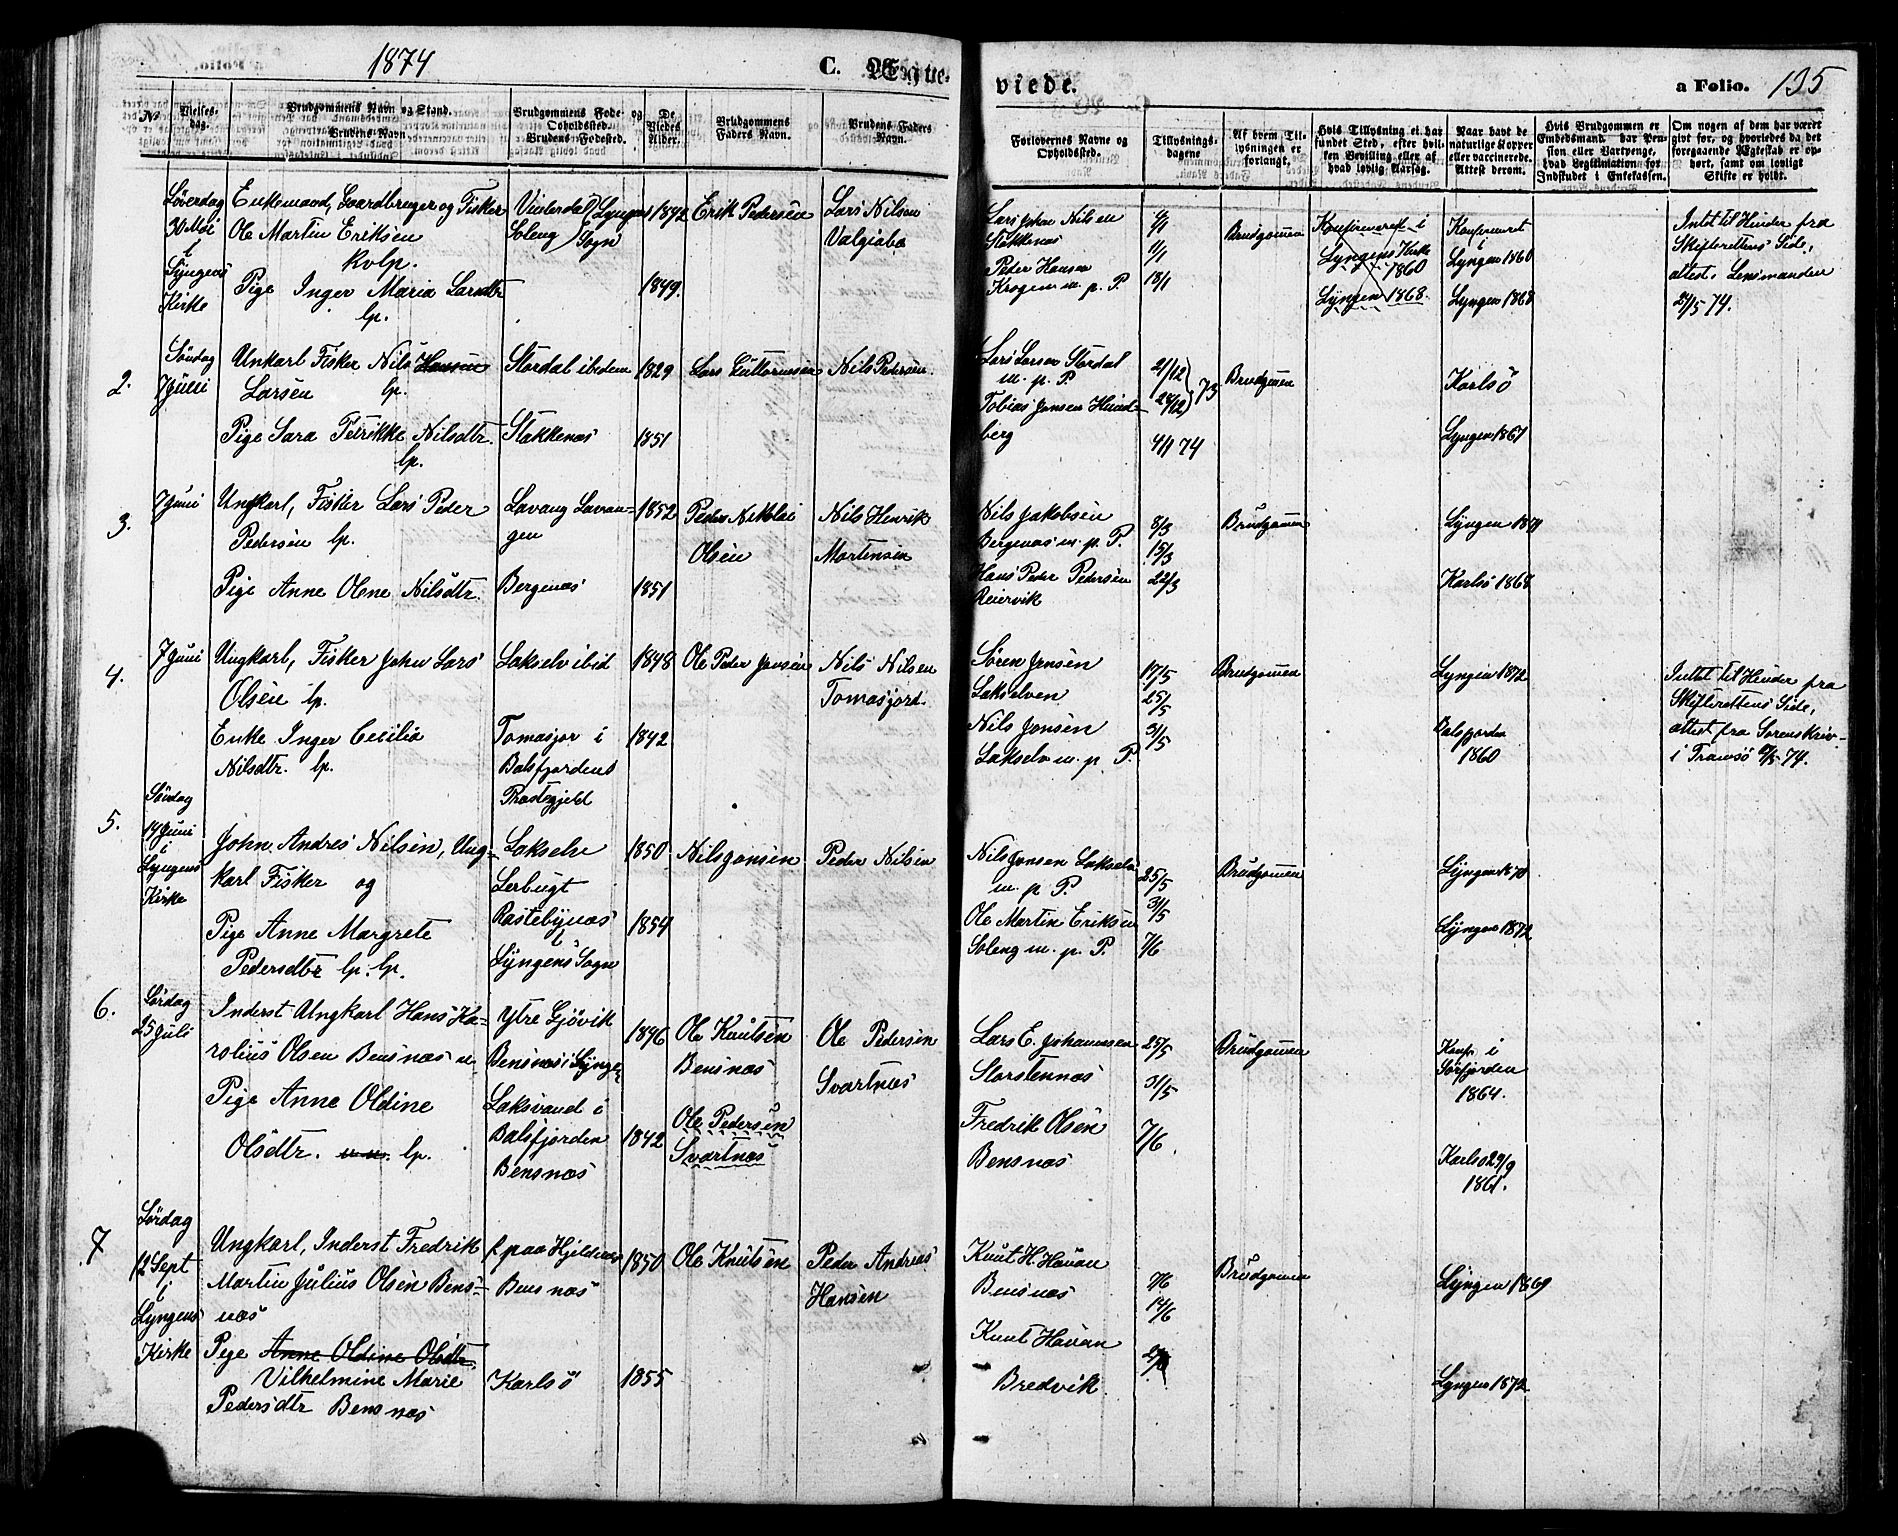 1874
C. Ægte-
viede.
a Folio. 135
No
Vielses-
dag.
Brudgommens Navn og Stand.
Brudens Navn
Brudgommens Føde- og
Opholdssted.
Brudens Fødested.
De
Viedes
Alder.
Brudgommens
Faders Navn.
Brudens Faders
Navn.
Forlovernes Navne og
Opholdssted.
Tillysnings-
dagene
Af hvem Til-
lysningen er
forlangt,
Hvis Tillysning ei har
fundet Sted, efter hvil-
ken Bevilling eller af
hvad lovlig Aarsag.
Naar havt de
naturlige Kopper
eller vaccinerede.
Attest derom.
Hvis Brudgommen er
Embedsmand, har Pen-
sion eller Vartpenge,
hvad Legitimation for
Indskudet i Enkekassen.
Om nogen af dem har været
gift før, og hvorledes da det
foregaaende Ægteskab er op-
hørt, samt om lovligt
Skifte er holdt.
Løverdag
30 Mai
i
Lyngens
Kirke
Enkemand, Gaardbruger og Fisker
Ole Martin Eriksen
kvlp.
Pige Inger Maria Larsdtr
lp.
Soleng
Lyngens
Sogn
1842
1849.
Erik Pedersen
Lars Nilsen
Valgiabo
Lars John Nilsen
Stokkenæs
Peder Hansen
Krogen m. p. P.
4/1
11/1
18/1
Brudgomen
Konfirmeret i
Lyngens Kirke
1860
Lyngen 1868.
Konfirmert
i
Lyngen 1860
Lyngen 1868
Intet til Hinder fra
Skifterettens Side,
attest. Lensmanden
21/5 74.
2.
Søndag
7 Juni
Unkarl Fisker Nils Hansen
Larsen lp.
Pige Sara Petrikke Nilsdtr.
lp.
Stordal ibidem
Stakkenæs
1829
1851
Lars Guttormsen
Nils Pedersen
Lars Larsen Stordal
m. p. P
Tobias Jensen Hund-
berg
21/12
28/12
73
4/1 74
Brudgomen
Karlsö
Lyngen 1867
3.
7 Juni
Ungkarl, Fisker Lars Peder
Pedersen lp.
Pige Anne Olene Nilsdtr.
Lavang Lavan-
gen
Bergenæs
1852
1851
Peder Nikolai
Olsen
Nils Henrik
Mortensen
Nils Jakobsen
Bergenæs m. p. P.
Hans Peder Pedersen
Reiervik
8/3
15/3
22/3
Brudgomen
Lyngen
Karlsö 1868
4.
7 Juni
Ungkarl, Fisker John Lars
Olsen lp.
Enke Inger Cecilia
Nilsdtr. lp.
Lakselv ibid
Tomasjor i
Balsfjordens
Præstegjeld
1848
1842
Ole Peder Jensen
Nils Nilsen
Tomasjord.
Søren Jensen
Lakselven
Nils Jonsen
Lakselv m. p. P.
17/5
25/5
31/5
Brudgomen
Lyngen 1872
Balsfjorden
1860
Intet til Hinder fra
Skifterettens Side,
attest fra Sorenskriv-
i Tromsö /5 74.
5.
Søndag
14 Juni
i
Lyngens
Kirke
John Andres Nilsen, Ung-
karl Fisker og
Pige Anne Margrete
Pedersdtr lp. lp.
Lakselv
Lerbugt
Rastebynæs
i
Lyngens Sogn
1850
1854
Nils Jonsen
Peder Nilsen
Nils Jonsen Lakselv
m. p P.
Ole Martin Eriksen
Soleng m. p. P.
25/5
31/5
7/6
Brudgomen
Lyngen 1870
Lyngen 1872
6.
Lørdag
25 Juli
Inderst Ungkarl Hans Ka-
rolius Olsen Bensnæs
Pige Anne Oldine
Olsdtr. lp.
Ytre Gjövik
Bensnæs i Lyngen
Laksvand i
Balsfjorden
Bensnæs
1846
1842
Ole Knutsen
Bensnæs
Ole Pedersen
Svartnæs
Ole Pedersen
Svartnæs
Lars E. Johannesen
Storstennæs
Fredrik Olsen
Bensnæs
25/5
31/5
7/6
Brudgomen
Konf. i
Sørfjorden
1864.
Karlsö 29/9
1861.
7
Lørdag
12 Sept
i
Lyngens
Kirke
Ungkarl, Inderst Fredrik
Martin Julius Olsen Bens-
næs
Pige Anne Oldine Olsdtr
Vilhelmine Marie
Pedersdtr Bensnæs
f. paa Hjeldnæs
Bensnæs
Karlsö
1850
1855
Ole Knutsen
Peder Andreas
Hansen
Knut H. Havan
Bensnæs
Knut Havan
Bredvik
7/6
14/6
Brudgomen
Lyngen 1869
Lyngen 1872